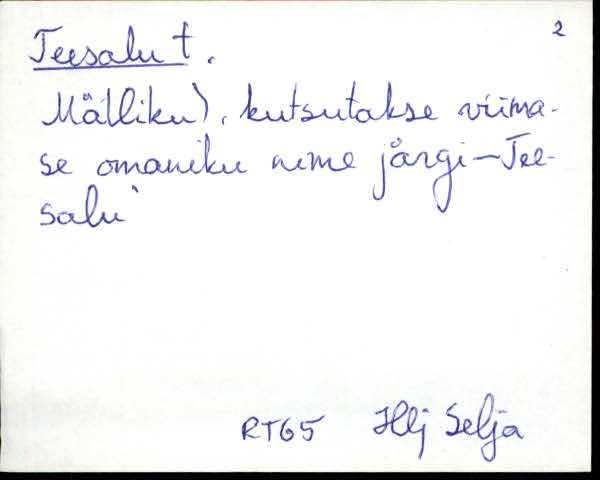 2
Teesalu t.
Mätliku), kutsutakse viima-
se omaniku nime järgi – Tee-
salu
RT65 Hlj Selja